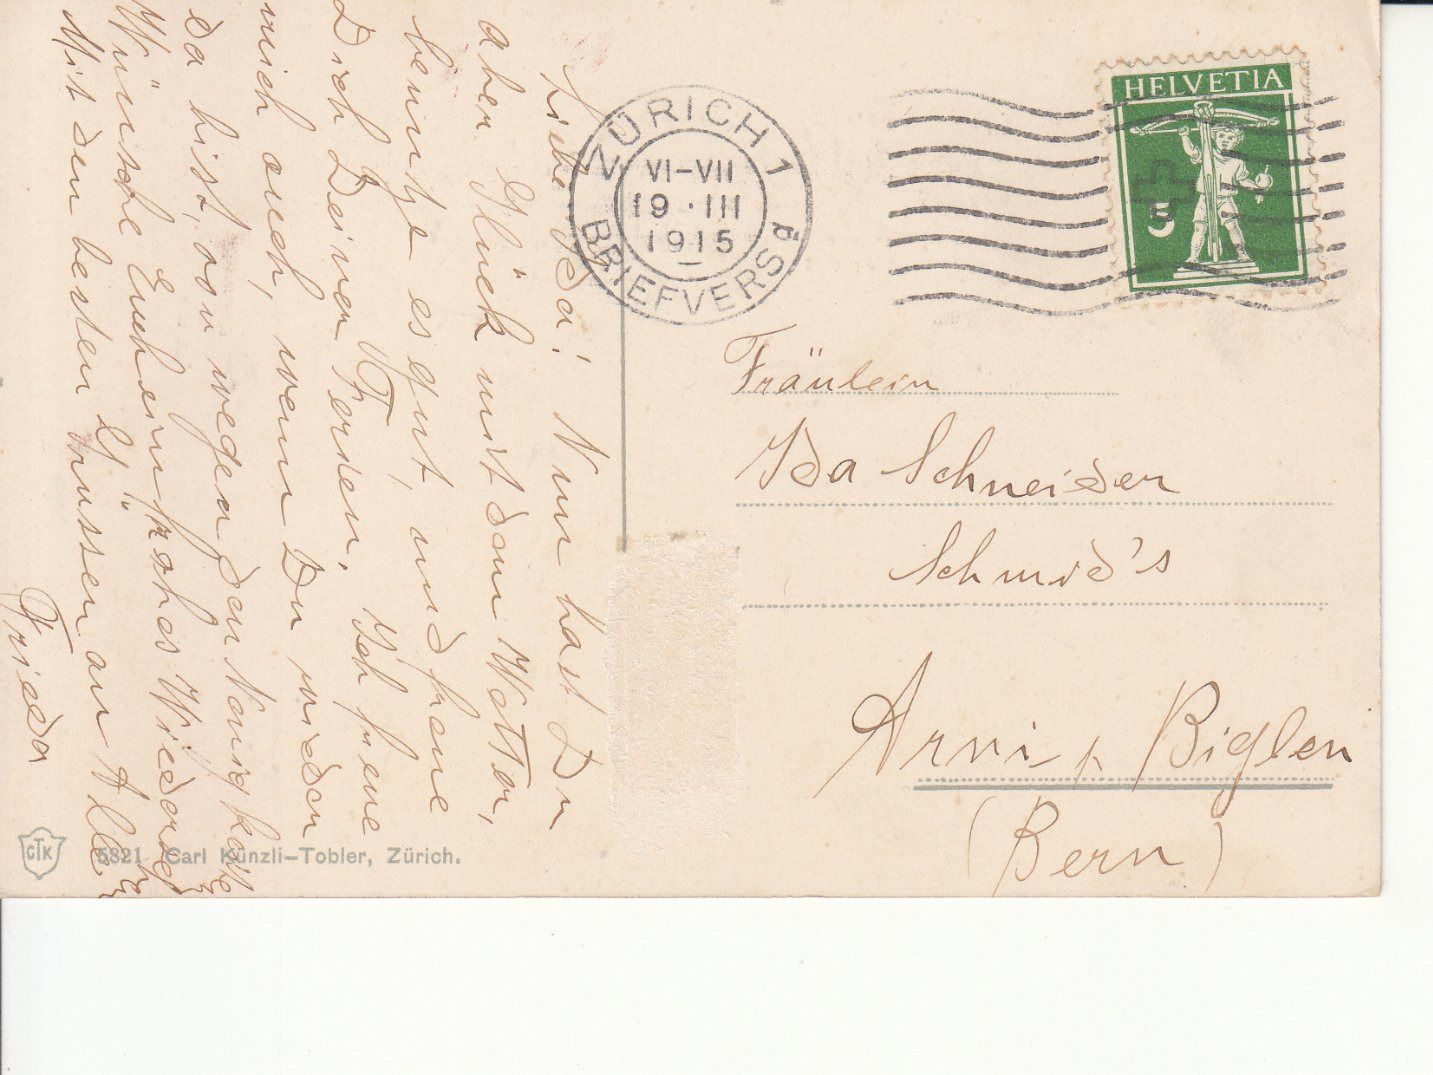 Liebe Ida! Nun hast Du
aber Glück mit dem Wetter,
benutze es gut, und freue
Dich Deiner Ferien. Ich freue
mich auch, wenn Du wieder
da bist, von wegen den
Wünsche Euch ein frohes Wiederseh
Mit den besten Grüssen an Alle
Frieda
ZÜRICH 1
VI-VII
19.III
1915
BRIEFVERSd
HELVETIA
5
Fräulein
Ida Schneider
Schmid's
Arni b. Biglen
(Bern)
CTK 5821 Carl Künzli-Tobler, Zürich.